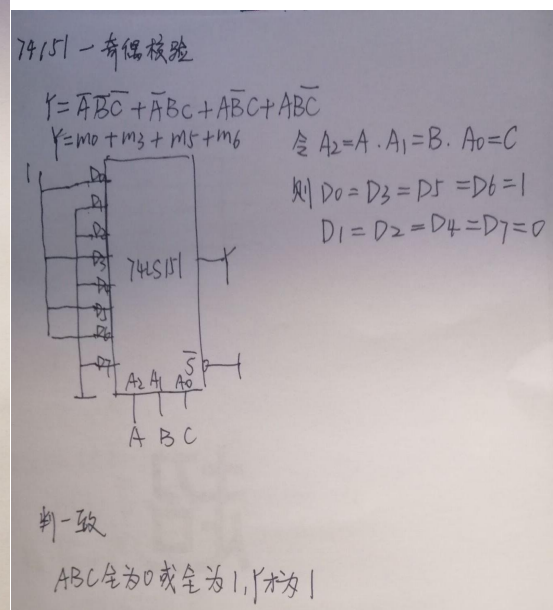 74151 — 奇偶校验
Y = A̅B̅C̅ + A̅BC + AB̅C + ABC̅
Y = m0 + m3 + m5 + m6
令 A2=A. A1=B. A0=C
则 D0=D3=D5=D6=1
D1=D2=D4=D7=0
1
D0
D1
D2
D3
D4
D5
D6
D7
74LS151
Y
S̅
A2 A1 A0
A B C
判一致
ABC全为0或全为1, Y才为1